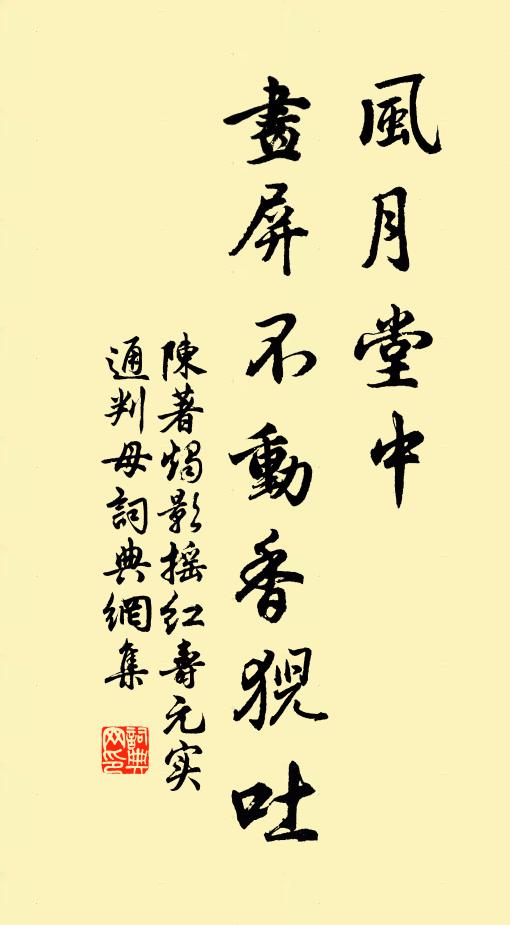 風月堂中
畫屏不動香猊吐
陳著燭影搖红壽元实
通判母詞典網集
詞典
网印